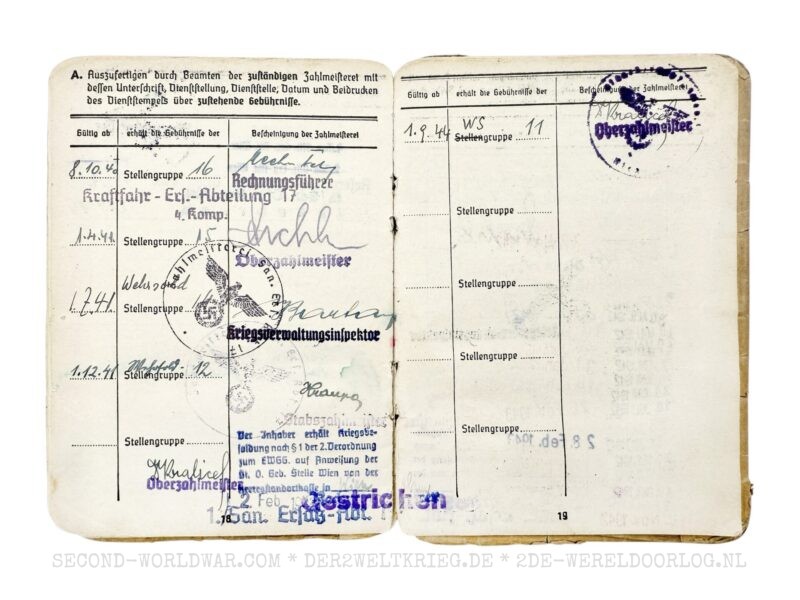 A. Auszufertigen durch Beamten der zuständigen Zahlmeisterei mit
dessen Unterschrift, Dienststellung, Dienststelle, Datum und Beidrucken
des Dienststempels über zustehende Gebührnisse.
Gültig ab erhält die Gebührnisse der Bescheinigung der Zahlmeisterei
8.10.40 Stellengruppe 16
Rechnungsführer
Kraftfahr-Ers.-Abteilung 17
4. Komp.
1.4.41 Stellengruppe 15
Oberzahlmeister
Zahlmeisterei San. Ers.
Wehrsold
1.7.41 Stellengruppe
Kriegsverwaltungsinspektor
1.12.41 Stellengruppe 12
Stabszahlmeister
Stellengruppe
Der Inhaber erhält Kriegsbe-
soldung nach § 1 der 2. Verordnung
zum EWGG. auf Anweisung der
Geb. Stelle Wien von der
Heeresstandortkasse in
Oberzahlmeister
2 Feb.
Gestrichen
1. San. Ersatz-Abt.
18
Gültig ab erhält die Gebührnisse der Bescheinigung der Zahlmeisterei
1.9.44 WS
Stellengruppe 11
Oberzahlmeister
Stellengruppe
Stellengruppe
Stellengruppe
Stellengruppe
28 Feb. 1947
19
SECOND-WORLDWAR.COM * DER2WELTKRIEG.DE * 2DE-WERELDOORLOG.NL